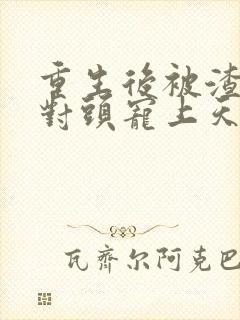 重生後被渣
對頭寵上天
瓦齊尔阿克巴